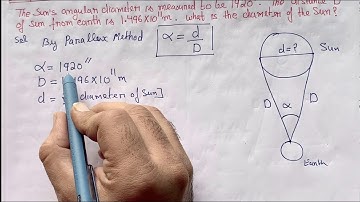 The Sun's angular diameter is measured to be 1920". The distance D
of Sun from earth is 1.496×10¹¹m. What is the diameter of the Sun?
Sol By Parallax Method
α = d/D
α = 1920"
D = 1.496×10¹¹m
d = diameter of Sun]
d=?
Sun
D
D
α
Earth